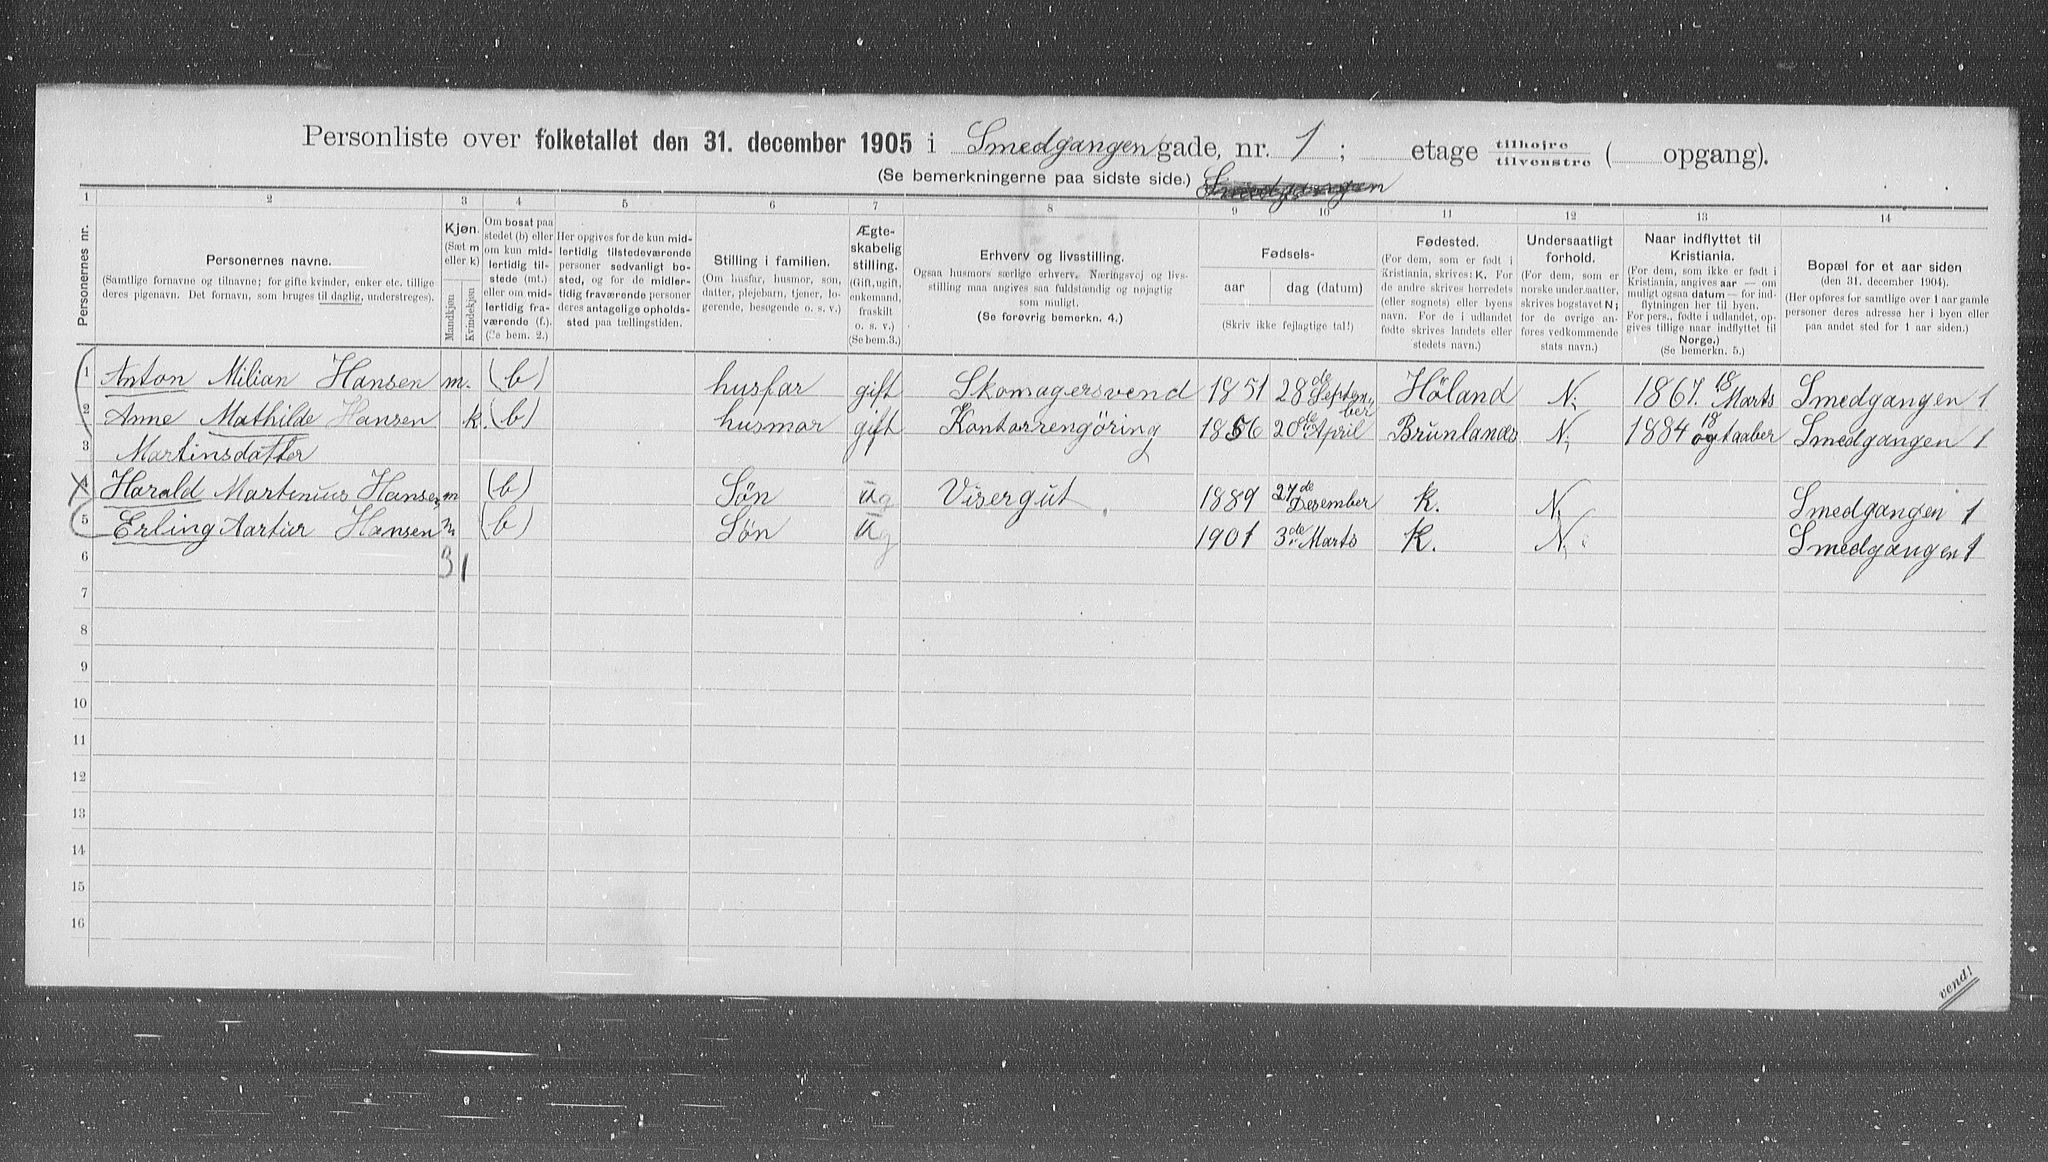 Personliste over folketallet den 31. december 1905 i Smedgangen gade, nr. 1 ; etage tilhøjre tilvenstre ( opgang).
(Se bemerkningerne paa sidste side.) Smedgangen
1 2 3 4 5 6 7 8 9 10 11 12 13 14
Personernes nr.
Personernes navne.
(Samtlige fornavne og tilnavne; for gifte kvinder, enker etc. tillige
deres pigenavn. Det fornavn, som bruges til daglig, understreges).
Kjøn.
(Sæt m
eller k)
Mandkjøn
Kvindekjøn
Om bosat paa
stedet (b) eller
om kun mid-
lertidig til-
stede (mt.)
eller om mid-
lertidig fra-
værende (f.).
(Se bem. 2.)
Her opgives for de kun mid-
lertidig tilstedeværende
personer sedvanligt bo-
sted, og for de midler-
tidig fraværende personer
deres antagelige opholds-
sted paa tællingstiden.
Stilling i familien.
(Om husfar, husmor, søn,
datter, plejebarn, tjener, lo-
gerende, besøgende o. s. v.)
Ægte-
skabelig
stilling.
(Gift, ugift,
enkemand,
fraskilt
o. s. v.)
(Se bem.3.)
Erhverv og livsstilling.
Ogsaa husmors særlige erhverv. Næringsvej og livs-
stilling maa angives saa fuldstændig og nøjagtig
som muligt.
(Se forøvrig bemerkn. 4.)
Fødsels-
aar dag (datum)
(Skriv ikke fejlagtige tal!)
Fødested.
(For dem, som er født i
Kristiania, skrives: K. For
de andre skrives herredets
(eller sognets) eller byens
navn. For de i udlandet
fødte skrives landets eller
stedets navn.)
Undersaatligt
forhold.
(For dem, som er
norske undersaatter,
skrives bogstavet N;
for de øvrige an-
føres vedkommende
stats navn.)
Naar indflyttet til
Kristiania.
(For dem, som ikke er født i
Kristiania, angives aar — om
muligt ogsaa datum — for ind-
flytningen her til byen.
For pers., fødte i udlandet, op-
gives tillige naar indflyttet til
Norge.)
(Se bemerkn. 5.)
Bopæl for et aar siden
(den 31. december 1904).
(Her opføres for samtlige over 1 aar gamle
personer deres adresse her i byen eller
paa andet sted for 1 aar siden.)
1 Anton Milian Hansen m. (b) husfar gift Skomagersvend 1851 28de Septem-ber Høland N; 1867. 18 Marts Smedgangen 1
2 Anne Mathilde Hansen k. (b) husmor gift Kontorrengöring 1856 20de April Brunlanæs N; 1884 18 ogtaaber Smedgangen 1
3 Martinsdatter
X 4 Harald Martinius Hansen m (b) Søn ug Visergut 1889 27de Desember K. N. Smedgangen 1
5 Erling Aartur Hansen m (b) Søn ug 1901 3de Marts K. N. Smedgangen 1
6 3 1
7
8
9
10
11
12
13
14
15
16
vend!